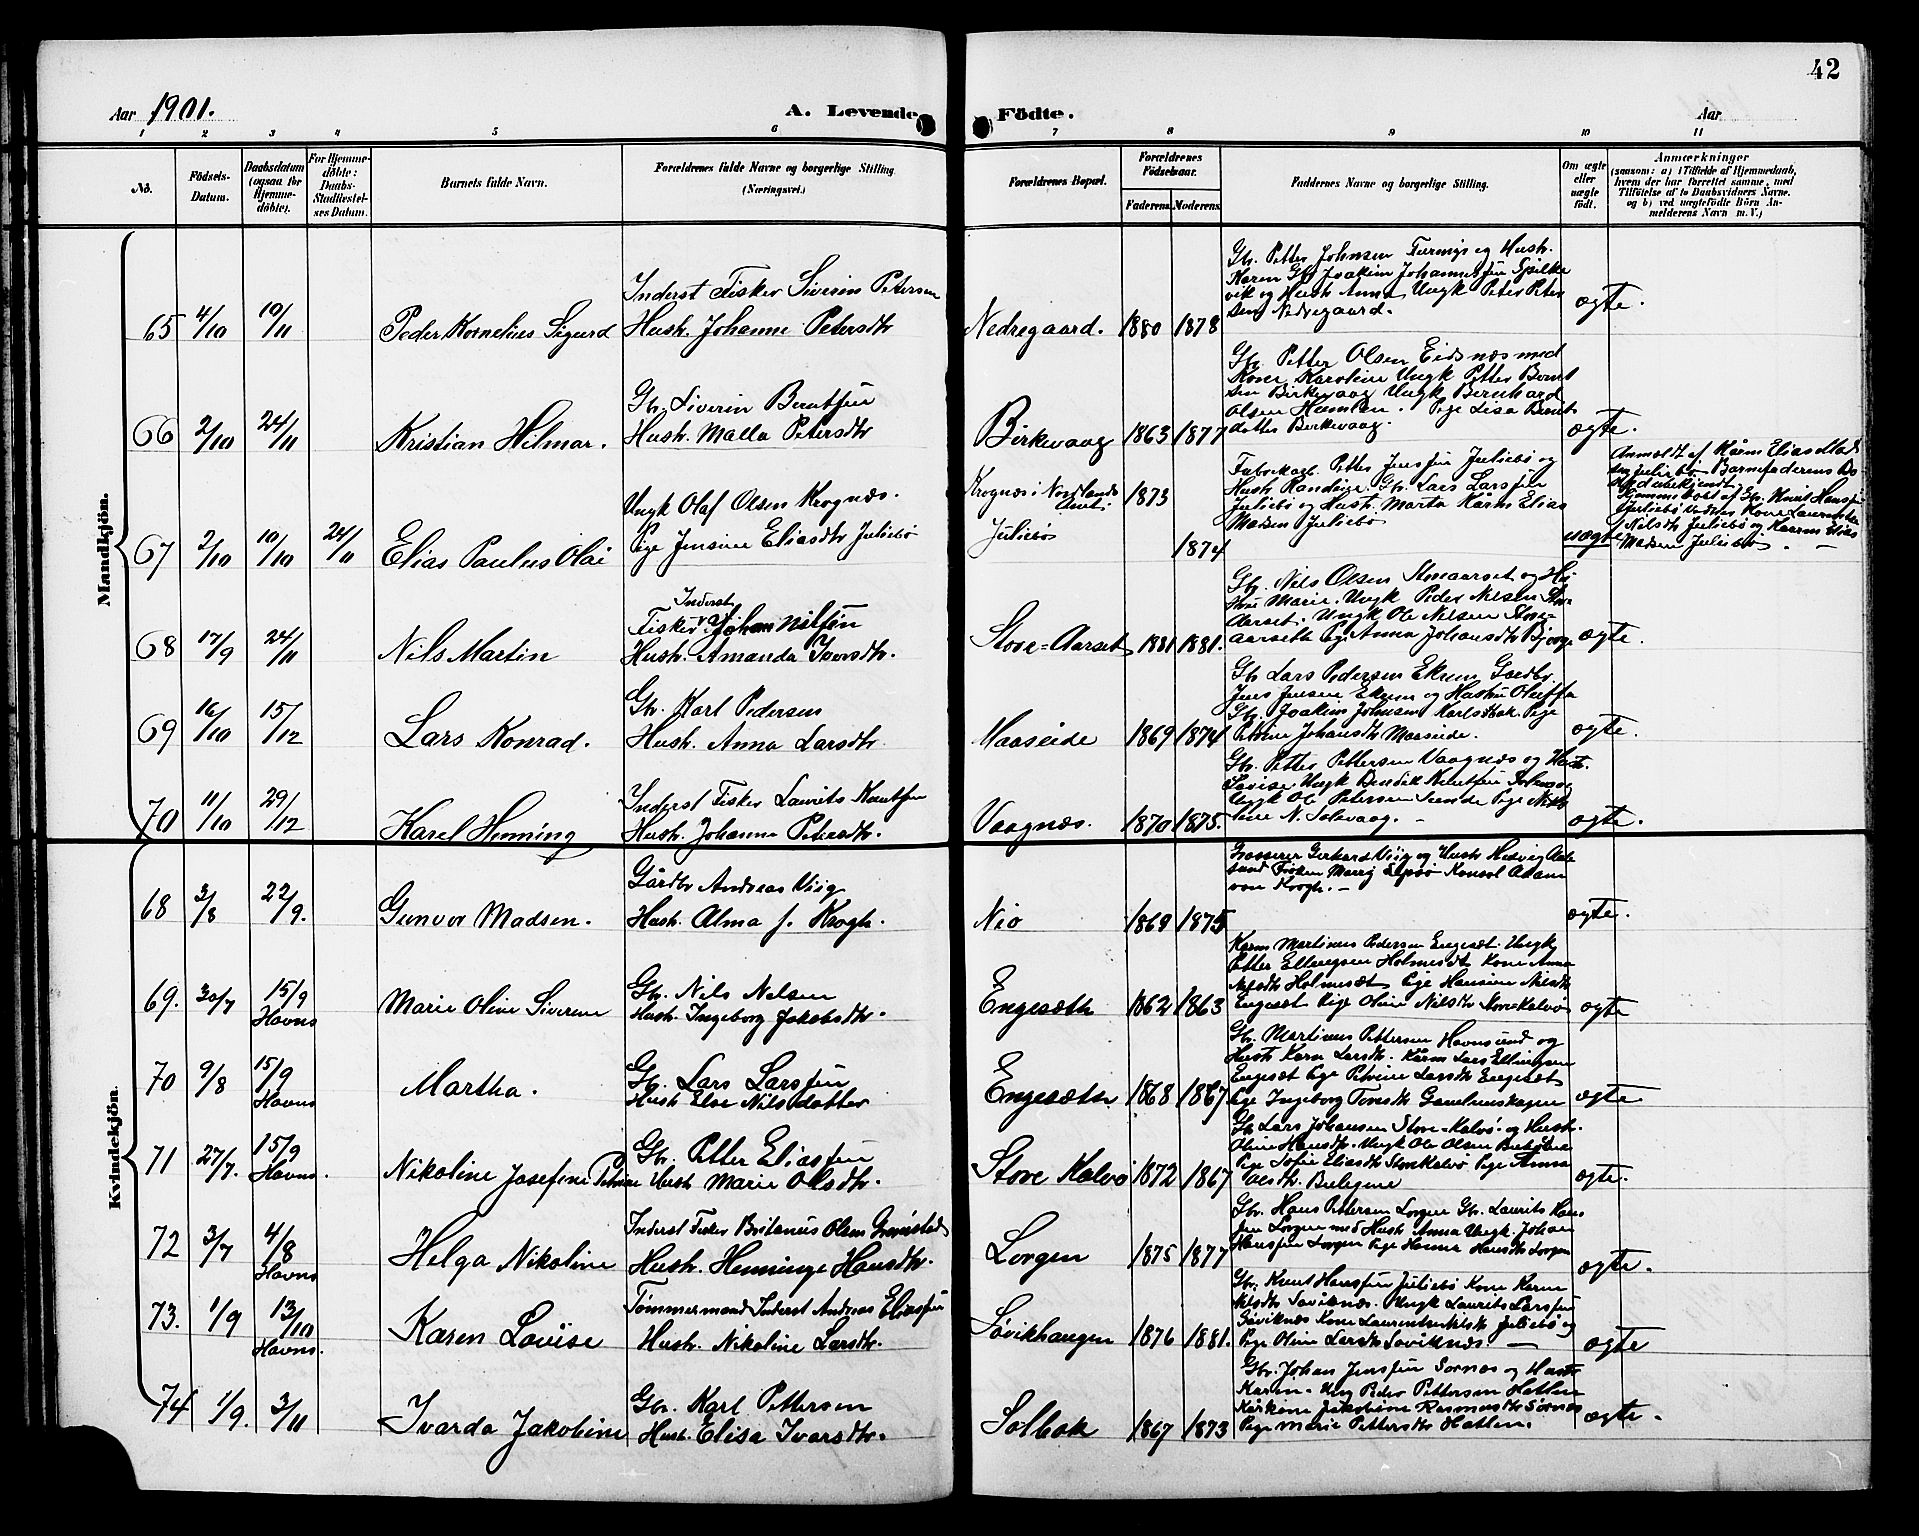 42
Aar 1901.
A. Levende Födte.
Aar
1 2 3 4 5 6 7 8 9 10 11
No.
Födsels-Datum.
Daabsdatum (ogsaa for Hjemme-döbte).
For Hjemme-döbte: Daabs-Stadfæstel-ses Datum.
Barnets fulde Navn.
Forældrenes fulde Navne og borgerlige Stilling. (Næringsvei.)
Forældrenes Bopæl.
Forældrenes Födselsaar.
Faderens. Moderens.
Faddernes Navne og borgerlige Stilling.
Om ægte eller uægte födt.
Anmærkninger
(saasom: a) i Tilfælde af Hjemmedaab, hvem der har forrettet samme, med Tilföielse af to Daabsvidners Navne. og b) ved uægtefödte Börn An-melderens Navn m. V.)
Mandkjön.
65 4/10 10/11 Peder Kornelius Sigurd
Inderst Fisker Siverin Petersen
Hust. Johanne Petersdtr
Nedregaard. 1880 1878
Gbr. Petter Johnsen Furmyr og Hustr.
Karen Gbr Joakim Johannessen Spilke
vik og Hustr Anna Ungk Peter Peter
sen Nedregaard.
ægte.
66 2/10 24/11 Kristian Hilmar.
Gbr. Siverin Berntsen
Hust. Malla Petersdtr
Birkevaag 1863 1877
Gbr. Petter Olsen Eidsnæs med
Kone Karoline Ungk Petter Bernt
sen Birkevaag Ungk Bernhard
Olsen Hamlen. Pige Lisa Bernts
datter Birkevaag.
ægte.
67 2/10 10/10 24/11 Elias Paulus Olai
Ungk Olaf Olsen Krognæs.
Pige Jensine Eliasdtr Juliebö
Krognæs i Nordlands Amt.
Juliebö
1873
1874
Fabrikarb. Petter Jenssen Juliebö og
Hustr Randine. Gbr. Lars Larssen
Juliebö og Hust. Marta Kårm Elias
Madsen Juliebö
uægte
Anmeldt af Kårm Elias Mad
sen Juliebö
Hjemmedöbt af Gbr. Knut Hanssen
Nilsdtr Juliebö og Kaarm Elias
Madsen Juliebö.
68 17/9 24/11 Nils Martin
Inderst
Fisker Johan Nilsen
Hust. Amanda Iversdtr.
Store=Aarset 1881 1881.
Gbr. Nils Olsen Storeaarset og Hu
stru Marie. Ungk Peder Nilsen Store
Aarset. Ungk Ole Nilsen Store-
aarseth Pg. Anna Johansdtr
ægte.
69 16/10 15/12 Lars Konrad.
Gbr. Karl Pedersen
Hust. Anna Larsdtr.
Maaseide 1869 1874
Gbr Lars Pedersen Ekrem Gaardbr.
Jens Jensen Ekrem og Hustru Oluffa
Gbr. Joakim Johnsen Karlsbak. Pige
Petrine Johansdtr Maaseide.
ægte.
70 11/10 29/12 Karel Henning
Inderst Fisker Laurits Knutsen
Hust. Johanne Petersdtr.
Vaagnæs. 1870 1875.
Gbr. Petter Pettersen Vaagnæs og Hust.
Lovise Ungk Bendik Knutsen Solevaag
Ungk Ole Petersen Sunde Pige Niko
line N. Solevaag.
ægte.
Kvindekjön.
68 3/8 22/9. Gunvor Madsen.
Gårdbr Andreas Viig
Hust. Alma f. Krogh.
Nio 1869 1875
Grosserer Gerhard Viig og Hustr Hedvig Aale
sund Fröken Konsul Adam
von Krogh.
ægte.
69. 30/7 15/9
Havns
Marie Oline Siverine
Gbr. Nils Nilsen
Hust. Ingeborg Jakobsdtr.
Engesæth 1862 1863
Kårm Martinus Pedersen Engesæt. Ungk
Petter Ellengsen Holmesæt Kone Anna
Nilsdtr Holmesæt Pige Hansine Nilsdtr
Engesæt Pige Oline Nilsdtr Storekalvö
ægte
70 9/8 15/9
Havns
Martha.
Gbr. Lars Larssen
Hust Else Nilsdatter
Engesæth 1868 1867
Gbr. Martinus Pettersen Havnsund og
Hustr Karn Larsdtr. Kårm Lars Ellingsen
Engesæt Pige Petrine Larsdtr Engesæt
Pige Ingeborg Gamlemskagen
ægte
71 27/7. 15/9
Havns.
Nikoline Josefine Petrine
Gbr. Petter Eliassen
Hust Marie Olsdtr.
Store Kalvö 1872 1867
Gbr Lars Johansen Store-Kalvö og Hustr.
Oline Hansdtr. Ungk Ole Olsen
Pige Sofie Eliasdtr StoreKalvö Pige Anna
ægte.
72 3/7 4/8
Havns
Helga Nikoline
Inderst Fisker Britanus Olsen Grönstad
Hust. Henninge Hansdtr.
Lorgen 1875 1877
Gbr. Hans Pettersen Lorgen Gbr. Laurits Hans
sen Lorgen med Hustr Anna Ungk Johan
Hanssen Lorgen Pige Hanna Hansdtr Lorgen
ægte.
73. 1/9 13/10
Havns.
Karen Lovise
Tömmermand Inderst Andreas Eliassen
Hust. Nikoline Larsdtr.
Sövikhaugen 1876 1881.
Gbr. Knut Hanssen Juliebö Kone Karen
Nilsdtr Söviknæs. Ungk Laurits Larssen
Söviknæs Kone Laurentse Nilsdtr Juliebö og
Pige Oline Larsdtr Söviknæs.
ægte
74 1/9. 3/11 Ivarda Jakobine
Gbr. Karl Pettersen
Hust. Elisa Ivarsdtr.
Solbak 1867 1873
Gbr. Johan Jenssen Sornæs og Hustr
Karen. Ung Peder Pettersen Hatlen
Jakobine Rasmusdtr Sörnæs
Pige Marie Pettersdtr Hatlen.
ægte.